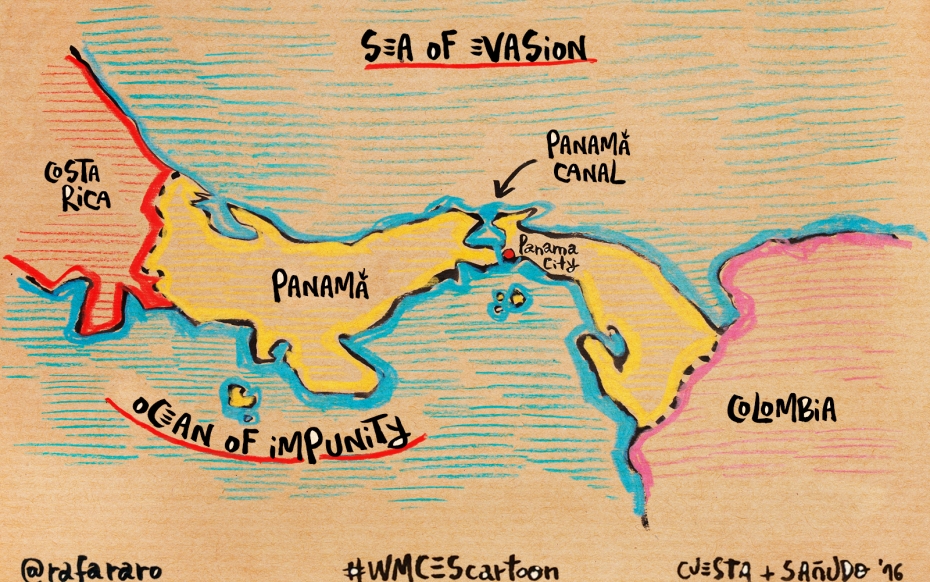 SEA OF EVASION
PANAMÁ
CANAL
COSTA
RICA
Panama
City
PANAMÁ
COLOMBIA
OCEAN OF IMPUNITY
@rafararo
#WMCEScartoon
CUESTA + SAÑUDO '16